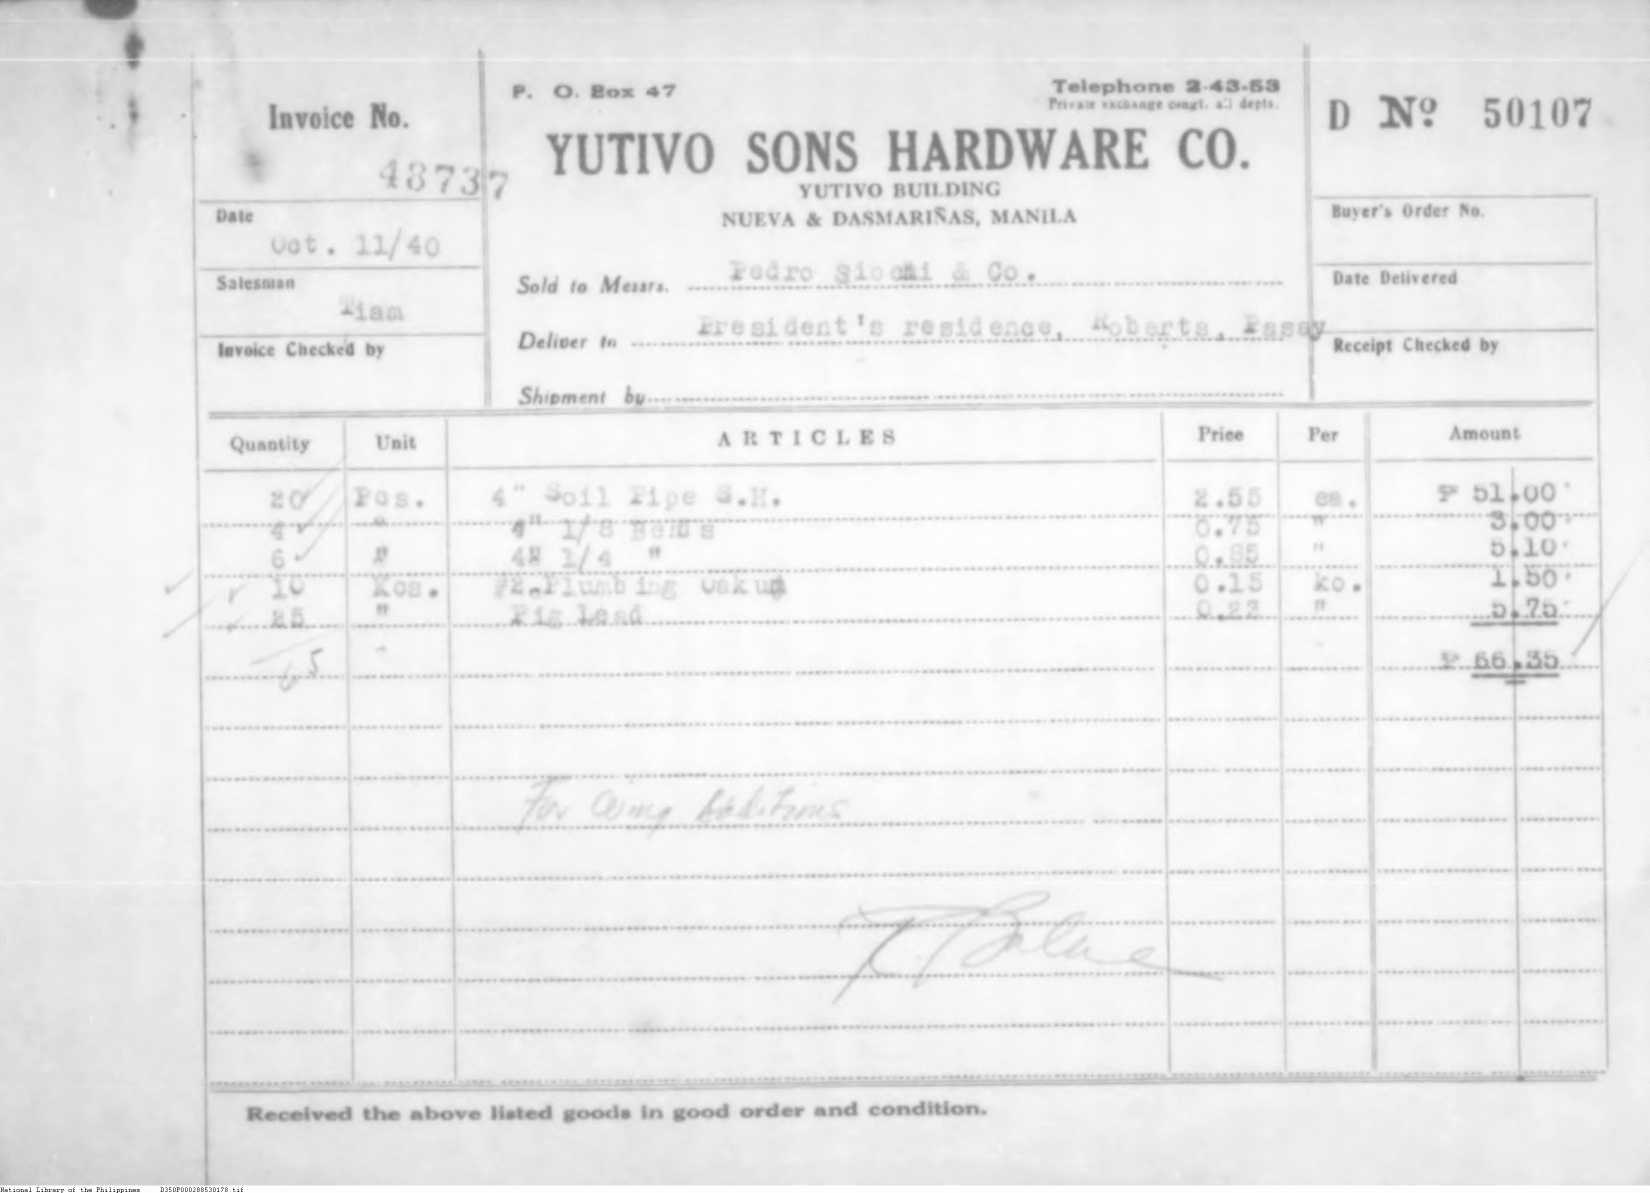 P. O. Box 47
Telephone 2-43-53
Private exchange congt. all depts.
Invoice No.
48737
YUTIVO SONS HARDWARE CO.
YUTIVO BUILDING
NUEVA & DASMARIÑAS, MANILA
D Nº 50107
Date
Oct. 11/40
Buyer's Order No.
Salesman
Tiam
Sold to Messrs. Pedro Siochi & Co.
Date Delivered
Invoice Checked by
Deliver to President's residence, Roberts, Pasay
Receipt Checked by
Shipment by
Quantity Unit ARTICLES Price Per Amount
20 Pcs. 4" Soil Pipe S.H. 2.55 ea. ₱ 51.00
4 " 4" 1/8 Bends 0.75 " 3.00
6 " 4" 1/4 " 0.85 " 5.10
10 Kos. #2 Plumbing Oakum 0.15 ko. 1.50
25 " Pig Lead 0.23 " 5.75
65
₱ 66.35
For Wing Additions
Received the above listed goods in good order and condition.
National Library of the Philippines D350P000288530178 tif